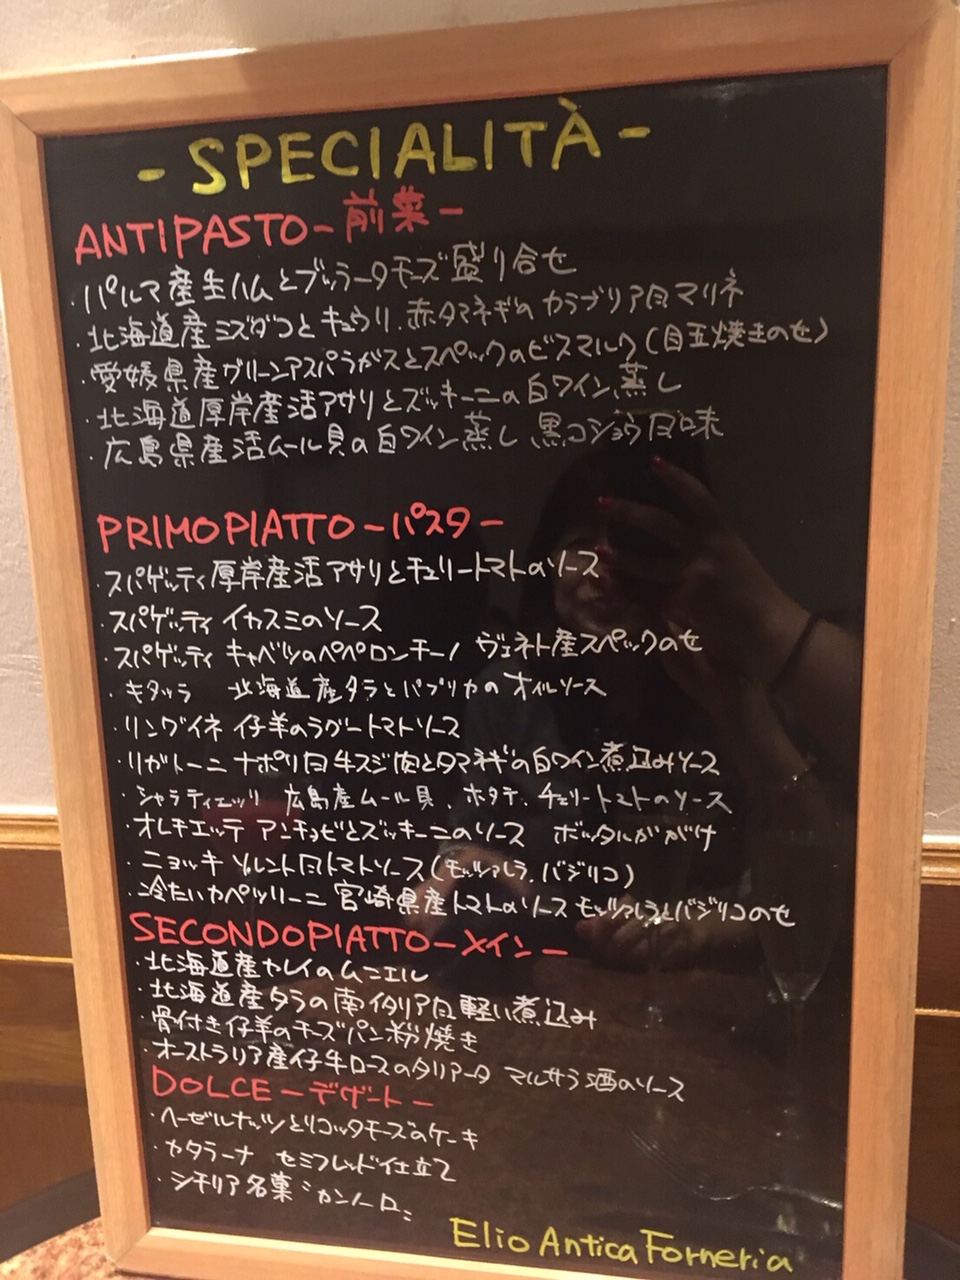 - SPECIALITÀ -
ANTIPASTO - 前菜 -
・パルマ産生ハムとブッラータチーズ 盛り合せ
・北海道産ミズダコとキュウリ、赤タマネギの カラブリア風マリネ
・愛媛県産グリーンアスパラガスとスペックのビスマルク(目玉焼きのせ)
・北海道厚岸産活アサリとズッキーニの白ワイン蒸し
・広島県産活ムール貝の白ワイン蒸し 黒コショウ風味
PRIMO PIATTO - パスタ -
・スパゲッティ 厚岸産活アサリとチェリートマトのソース
・スパゲッティ イカスミのソース
・スパゲッティ キャベツのペペロンチーノ ヴェネト産スペックのせ
・キタッラ 北海道産タラとパプリカの オイルソース
・リングイネ 仔羊のラグートマトソース
・リガトーニ ナポリ風牛スジ肉とタマネギの白ワイン煮込みソース
・シャラティエッリ 広島産ムール貝、ホタテ、チェリートマトのソース
・オレキエッテ アンチョビとズッキーニのソース ボッタルガがけ
・ニョッキ ソレント風トマトソース(モッツァレラ、バジリコ)
・冷たいカペッリーニ 宮崎県産トマトのソース モッツァレラとバジリコのせ
SECONDO PIATTO - メイン -
・北海道産カレイのムニエル
・北海道産タラの南イタリア風軽い煮込み
・骨付き仔羊のチーズパン粉焼き
・オーストラリア産仔牛ロースのタリアータ マルサラ酒のソース
DOLCE - デザート -
・ヘーゼルナッツとリコッタチーズのケーキ
・カタラーナ セミフレッド仕立て
・シチリア名菓 "カンノーロ"
Elio Antica Forneria